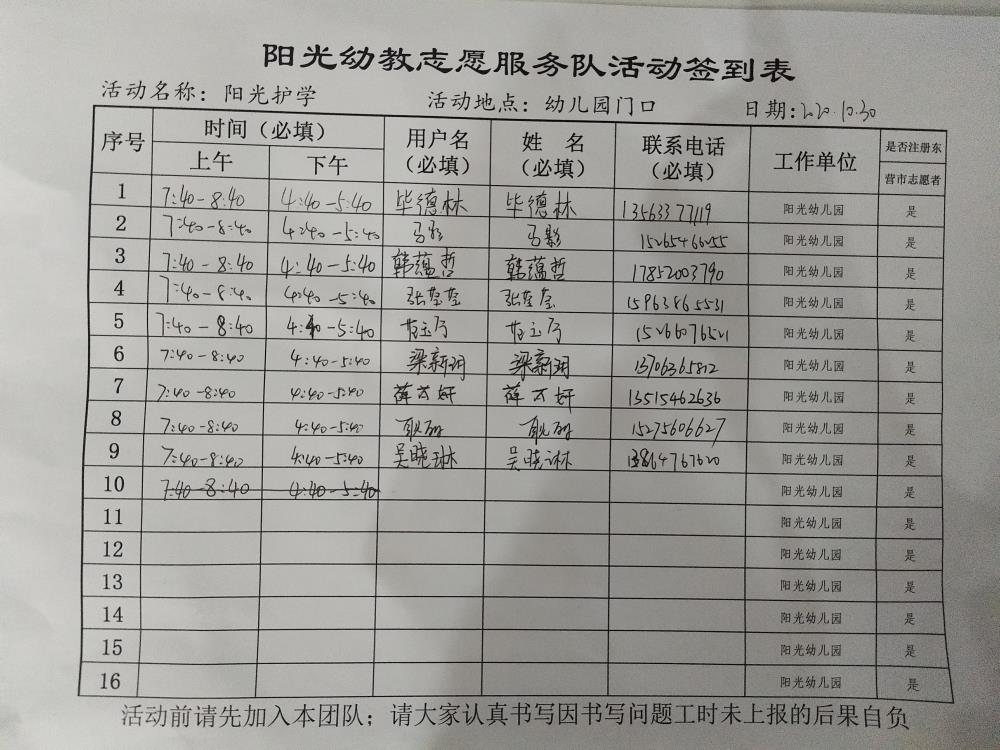 阳光幼教志愿服务队活动签到表
活动名称：阳光护学 活动地点：幼儿园门口 日期：2020.10.30
序号 时间（必填） 用户名（必填） 姓名（必填） 联系电话（必填） 工作单位 是否注册东营市志愿者
上午 下午
1 7:40-8:40 4:40-5:40 毕德林 毕德林 13563377119 阳光幼儿园 是
2 7:40-8:40 4:40-5:40 马影 马影 阳光幼儿园 是
3 7:40-8:40 4:40-5:40 韩蕴哲 韩蕴哲 17852003790 阳光幼儿园 是
4 7:40-8:40 4:40-5:40 张莹莹 张莹莹 15963865531 阳光幼儿园 是
5 7:40-8:40 4:40-5:40 阳光幼儿园 是
6 7:40-8:40 4:40-5:40 梁新玥 梁新玥 13706365812 阳光幼儿园 是
7 7:40-8:40 4:40-5:40 薛方妍 薛方妍 13515462636 阳光幼儿园 是
8 7:40-8:40 4:40-5:40 15275606627 阳光幼儿园 是
9 7:40-8:40 4:40-5:40 吴晓琳 吴晓琳 13864767620 阳光幼儿园 是
10 7:40-8:40 4:40-5:40 阳光幼儿园 是
11 阳光幼儿园 是
12 阳光幼儿园 是
13 阳光幼儿园 是
14 阳光幼儿园 是
15 阳光幼儿园 是
16 阳光幼儿园 是
活动前请先加入本团队；请大家认真书写因书写问题工时未上报的后果自负